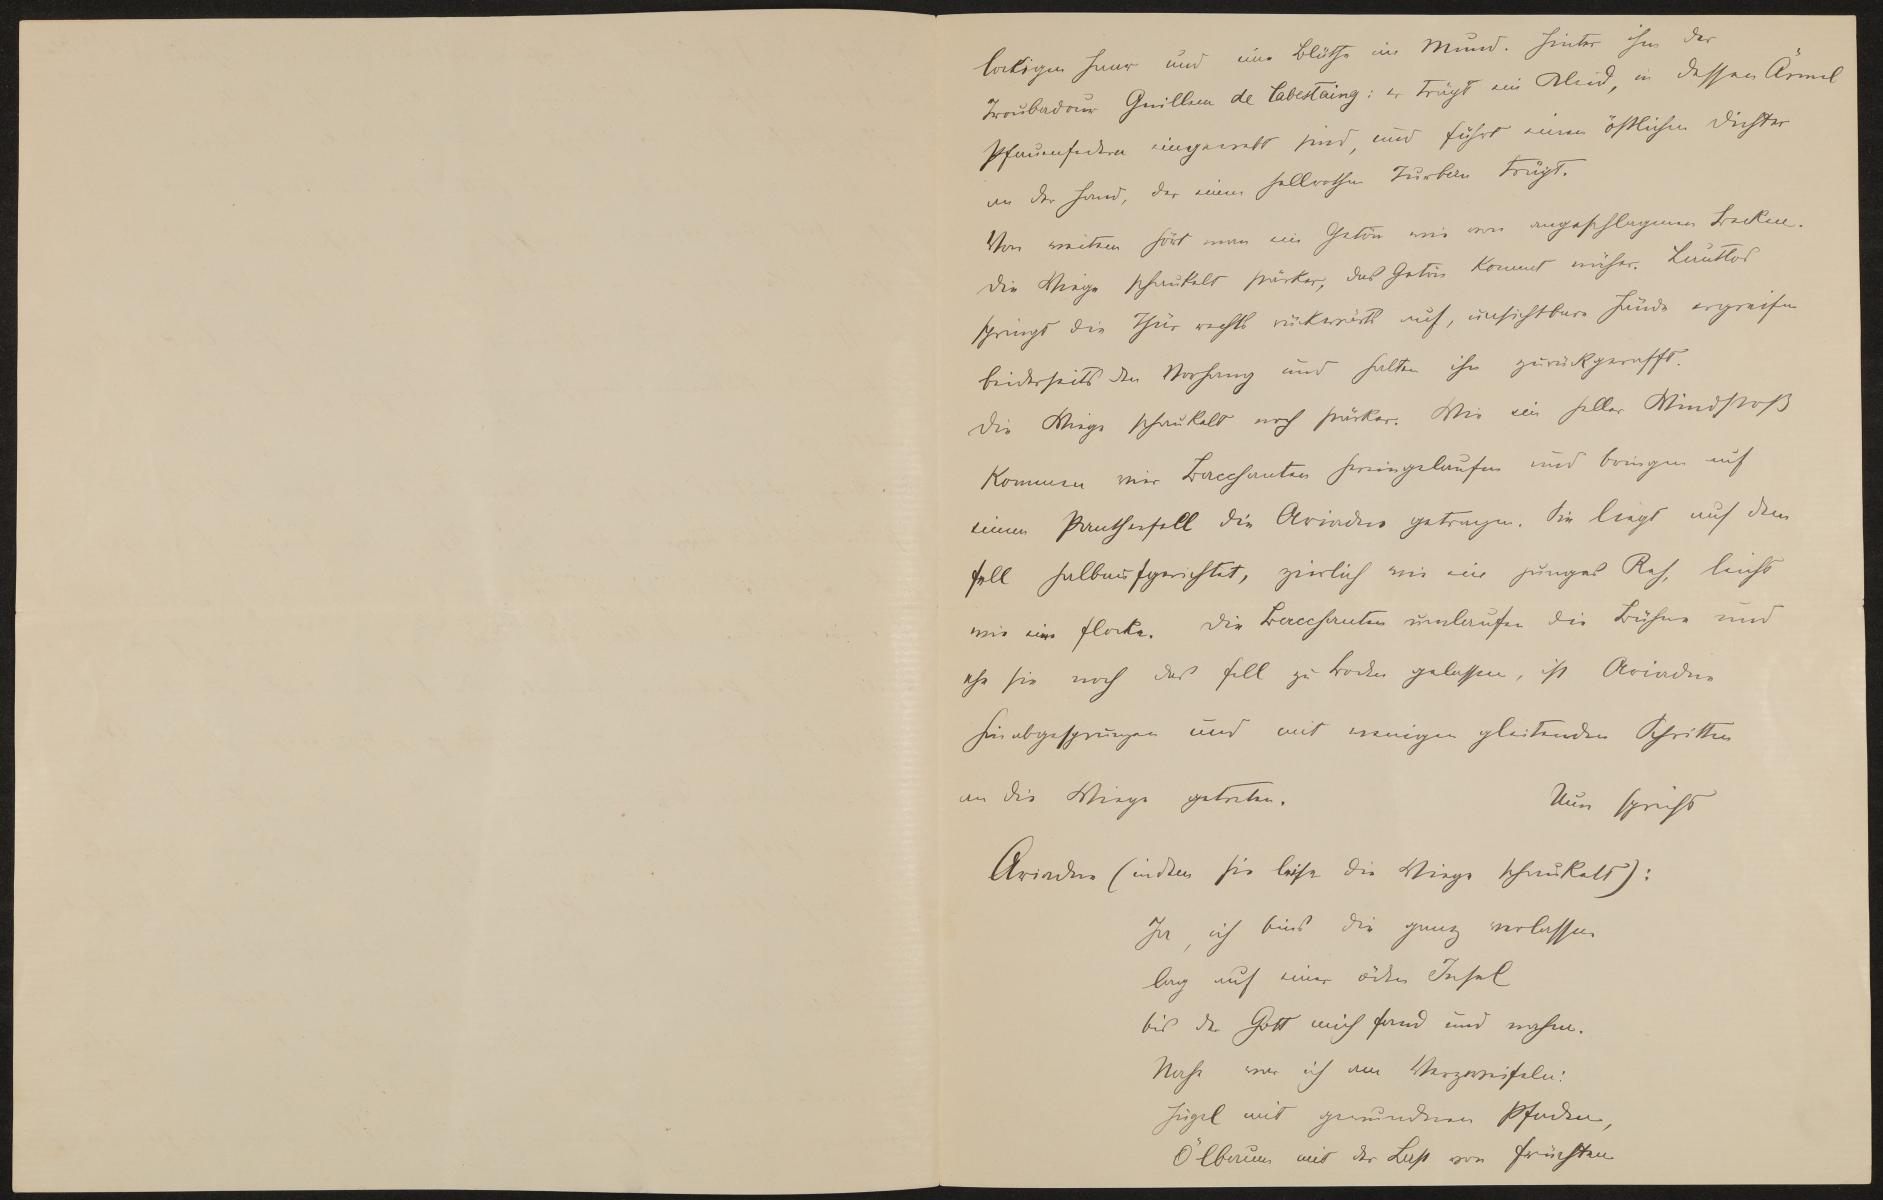 lockigen Haar und eine Blüthe im Mund. Hinter ihm der
Troubadour Guillem de Cabestaing: er trägt ein Kleid, in dessen Ärmel
Pfauenfedern eingewebt sind, und führt einen östlichen Dichter
an der Hand, der einen hellrothen Turban trägt.
Von weitem hört man ein Getön wie von angeschlagenen Becken.
Die Wiege schaukelt stärker, das Getön kommt näher. Lautlos
springt die Thür rechts rückwärts auf, unsichtbare Hände ergreifen
beiderseits den Vorhang und halten ihn zurückgerafft.
Die Wiege schaukelt noch stärker. Wie ein heller Windstoß
kommen vier Bacchanten hereingelaufen und bringen auf
einem Pantherfell die Ariadne getragen. Sie liegt auf dem
Fell halbaufgerichtet, zierlich wie ein junges Reh, leicht
wie eine Flocke. Die Bacchanten umlaufen die Bühne und
ehe sie noch das Fell zu Boden gelassen, ist Ariadne
hinabgesprungen und mit wenigen gleitenden Schritten
an die Wiege getreten. Nun spricht
Ariadne (indem sie leise die Wiege schaukelt):
Ja, ich bins die ganz verlassen
lag auf einer öden Insel
bis der Gott mich fand und nahm.
Nahe war ich am Verzweifeln:
Hügel mit gewundenen Pfaden,
Ölbaum mit der Last von Früchten